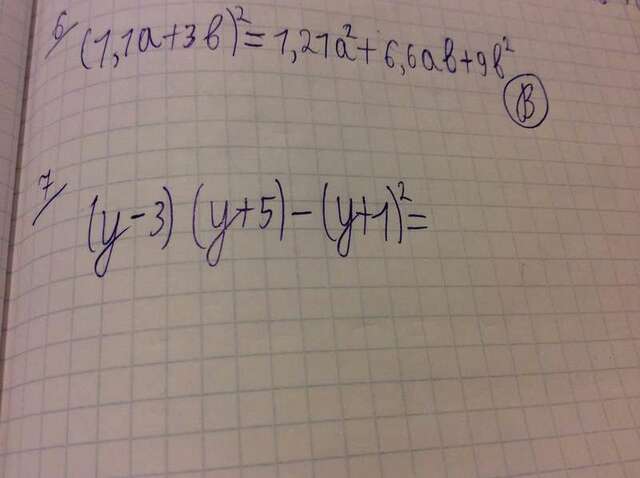 6/ (1,1a+3b)²=1,21a²+6,6ab+9b²
B
7/ (y-3)(y+5)-(y+1)²=